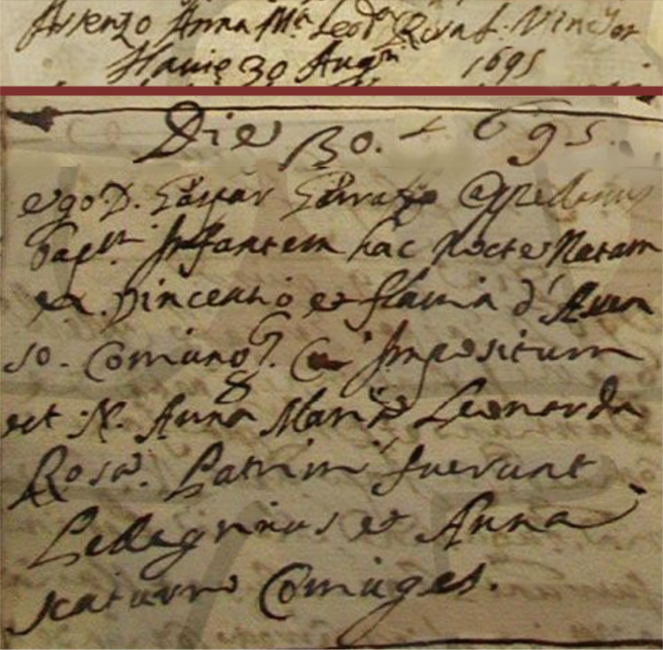 Arenzo Anna Mr Leodr Rosa f. Vincetor
Flavie 30 Augti 1695
Die 30. 1695.
ego D. Gaspar
Baptt Infantem hac Nocte Natam
ex Vincentio et Flavia d'Aren
so. Coniung. Cui Impositum
est N. Anna Maria Leonarda
Rosa. Patrini fuerunt
Peregrinus et Anna
Coniuges.